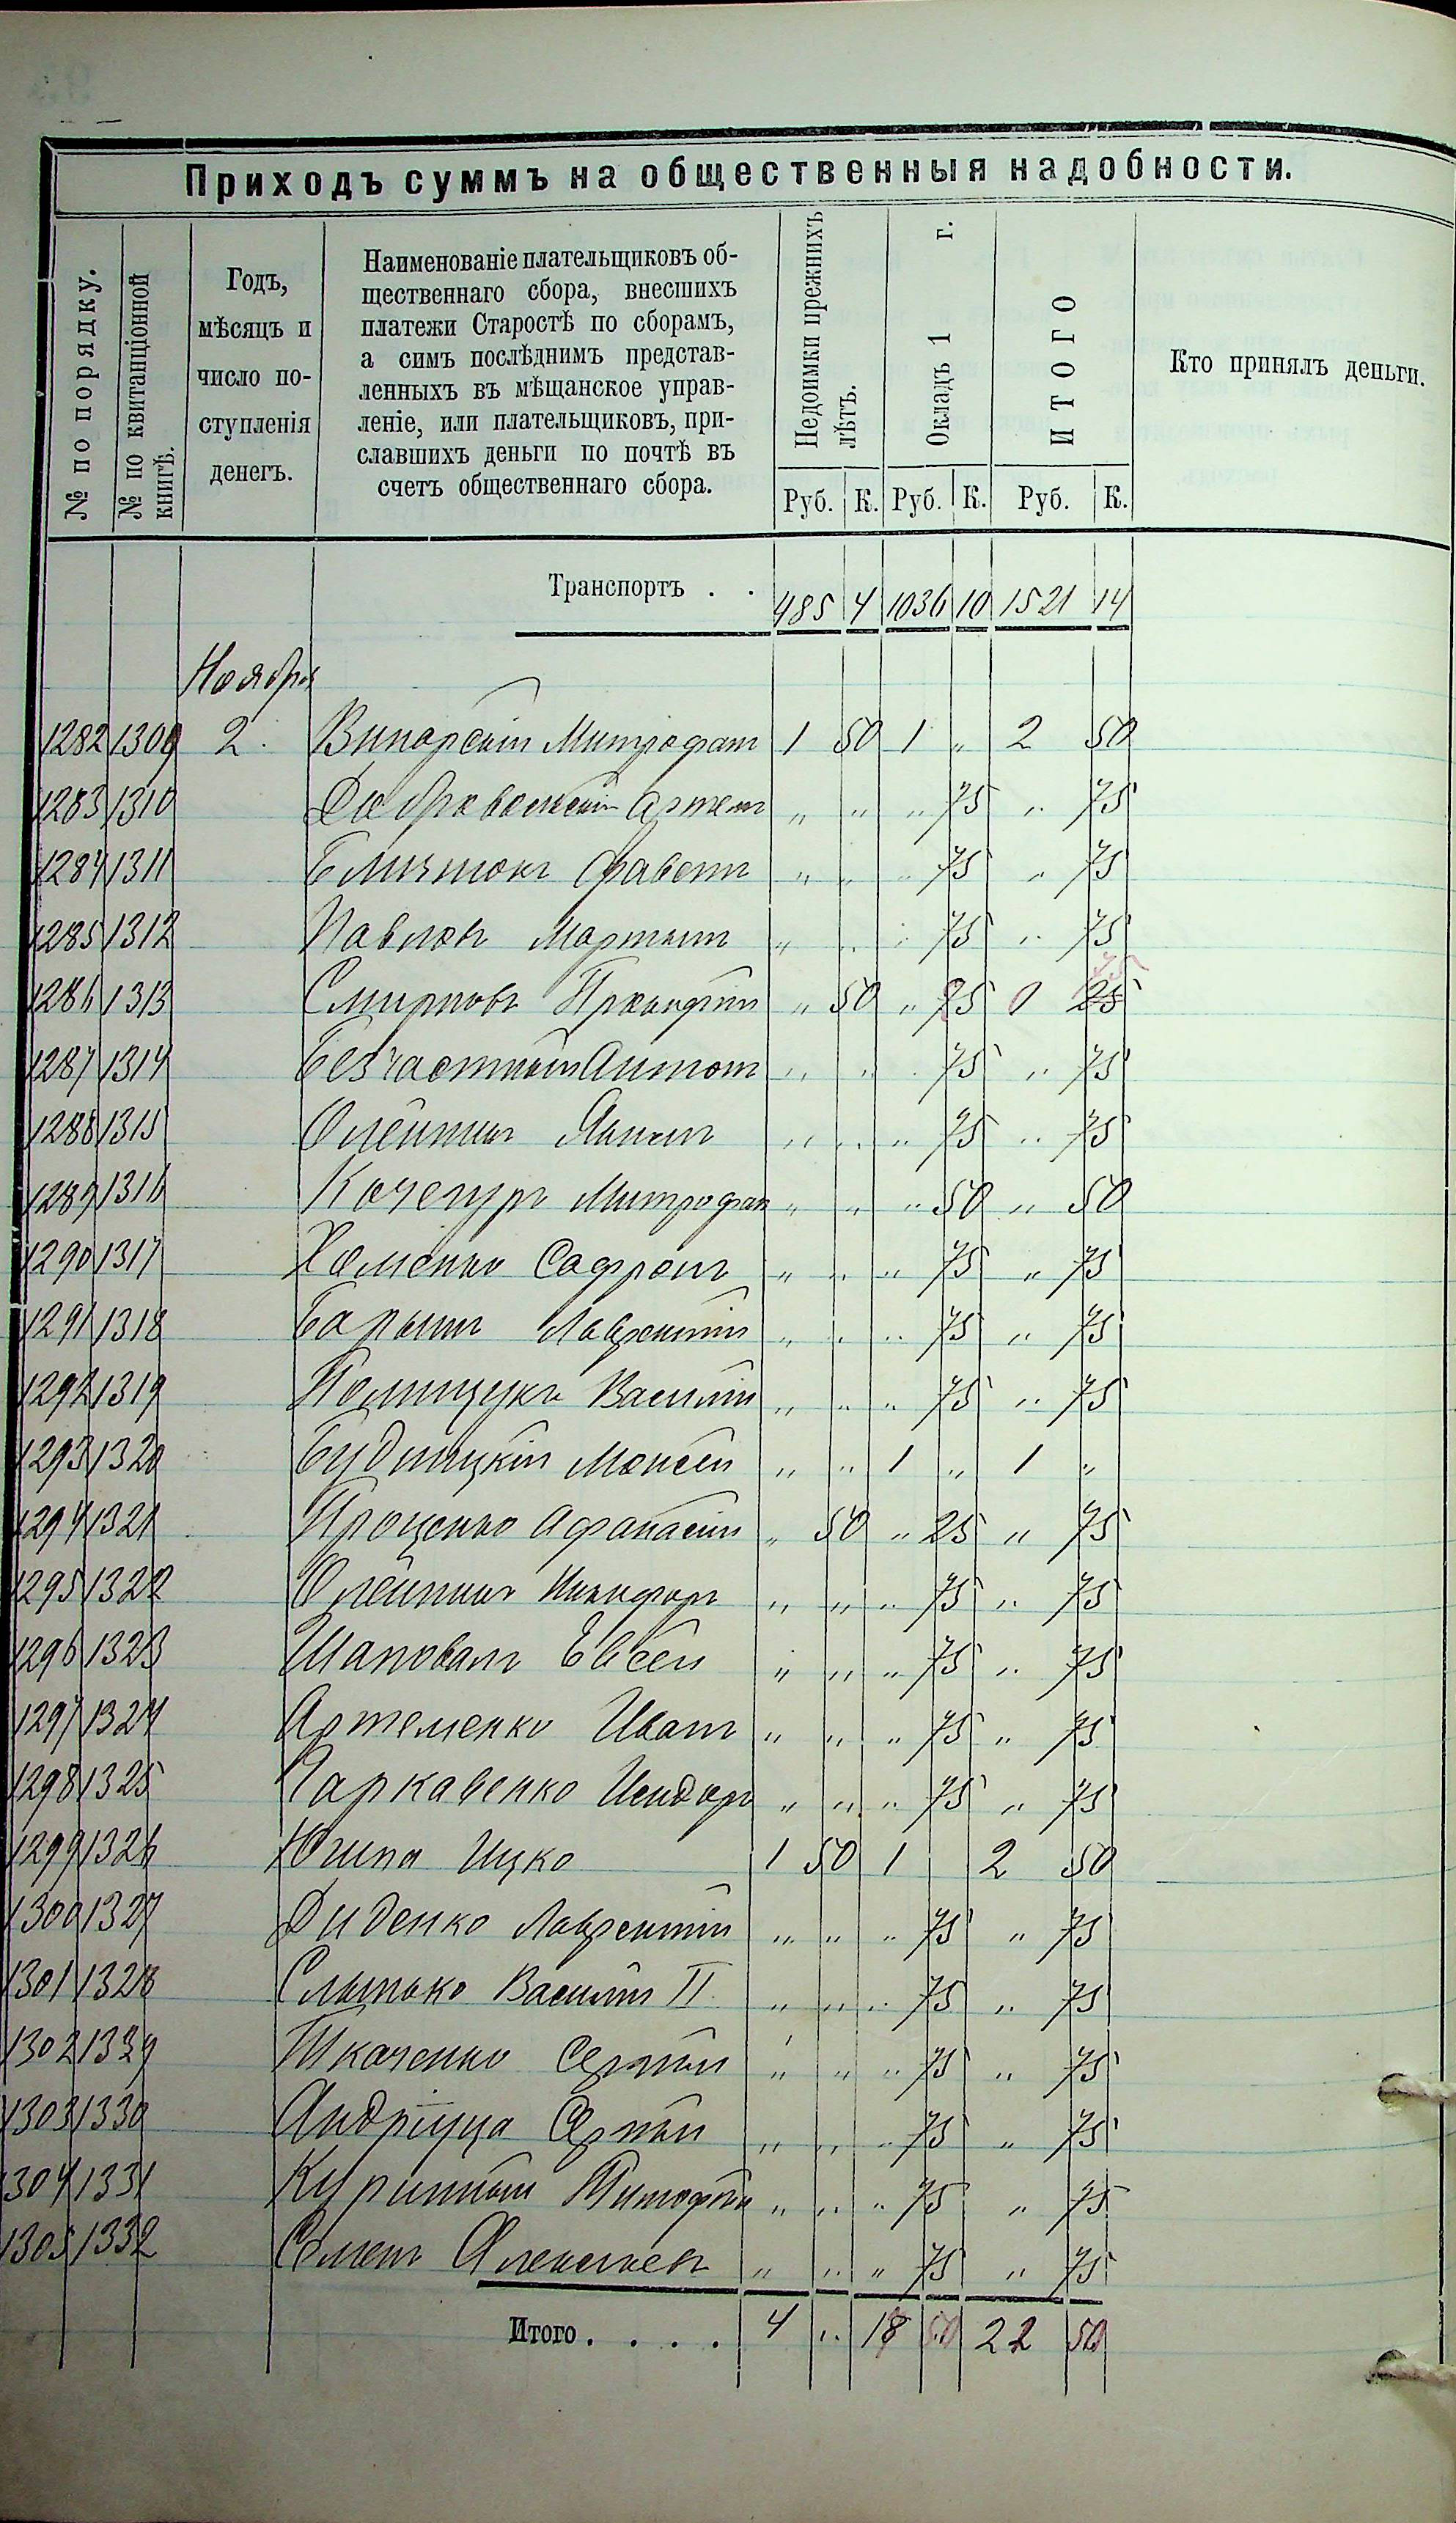 Приходъ суммъ на общественныя надобности.
№ по порядку.
№ по квитанціонной книгѣ.
Годъ,
мѣсяцъ и
число по-
ступленія
денегъ.
Наименованіе плательщиковъ об-
щественнаго сбора, внесшихъ
платежи Старостѣ по сборамъ,
а симъ послѣднимъ представ-
ленныхъ въ мѣщанское управ-
леніе, или плательщиковъ, при-
славшихъ деньги по почтѣ въ
счетъ общественнаго сбора.
Недоимки прежнихъ лѣтъ.
Окладъ 1 г.
ИТОГО
Кто принялъ деньги.
Руб. К. Руб. К. Руб. К.
Транспортъ . . 485 4 1036 10 1521 14
Ноября
1282 1309 2. Винарскій Митрофанъ 1 50 1 „ 2 50
1283 1310 Добровольскій Артемъ „ „ „ 75 „ 75
1284 1311 „ „ „ 75 „ 75
1285 1312 Павлюкъ Мартынъ „ „ „ 75 „ 75
1286 1313 Смирновъ Прокофій „ 50 „ 25 75
1287 1314 Безчастный Антонъ „ „ „ 75 „ 75
1288 1315 Олейникъ „ „ „ 75 „ 75
1289 1316 Кочегуръ Митрофан „ „ „ 50 „ 50
1290 1317 Хоменко Сафронъ „ „ „ 75 „ 75
1291 1318 Лаврентій „ „ „ 75 „ 75
1292 1319 Полищукъ Василій „ „ „ 75 „ 75
1293 1320 Будницкій Моисей „ „ 1 „ 1 „
1294 1321 Проценко Афанасій „ 50 „ 25 „ 75
1295 1322 Олейникъ Никифоръ „ „ „ 75 „ 75
1296 1323 Шаповалъ Евсей „ „ „ 75 „ 75
1297 1324 Артеменко Иванъ „ „ „ 75 „ 75
1298 1325 Гаркавенко Исидоръ „ „ „ 75 „ 75
1299 1326 Ицко 1 50 1 2 50
1300 1327 Диденко Лаврентій „ „ „ 75 „ 75
1301 1328 Василій II „ „ „ 75 „ 75
1302 1329 Ткаченко Сергѣй „ „ „ 75 „ 75
1303 1330 Андріуца Сергѣй „ „ „ 75 „ 75
1304 1331 Куринный Тимофѣй „ „ „ 75 „ 75
1305 1332 Семенъ Алексѣевъ „ „ „ 75 „ 75
Итого. . . . 4 „ 18 50 22 50